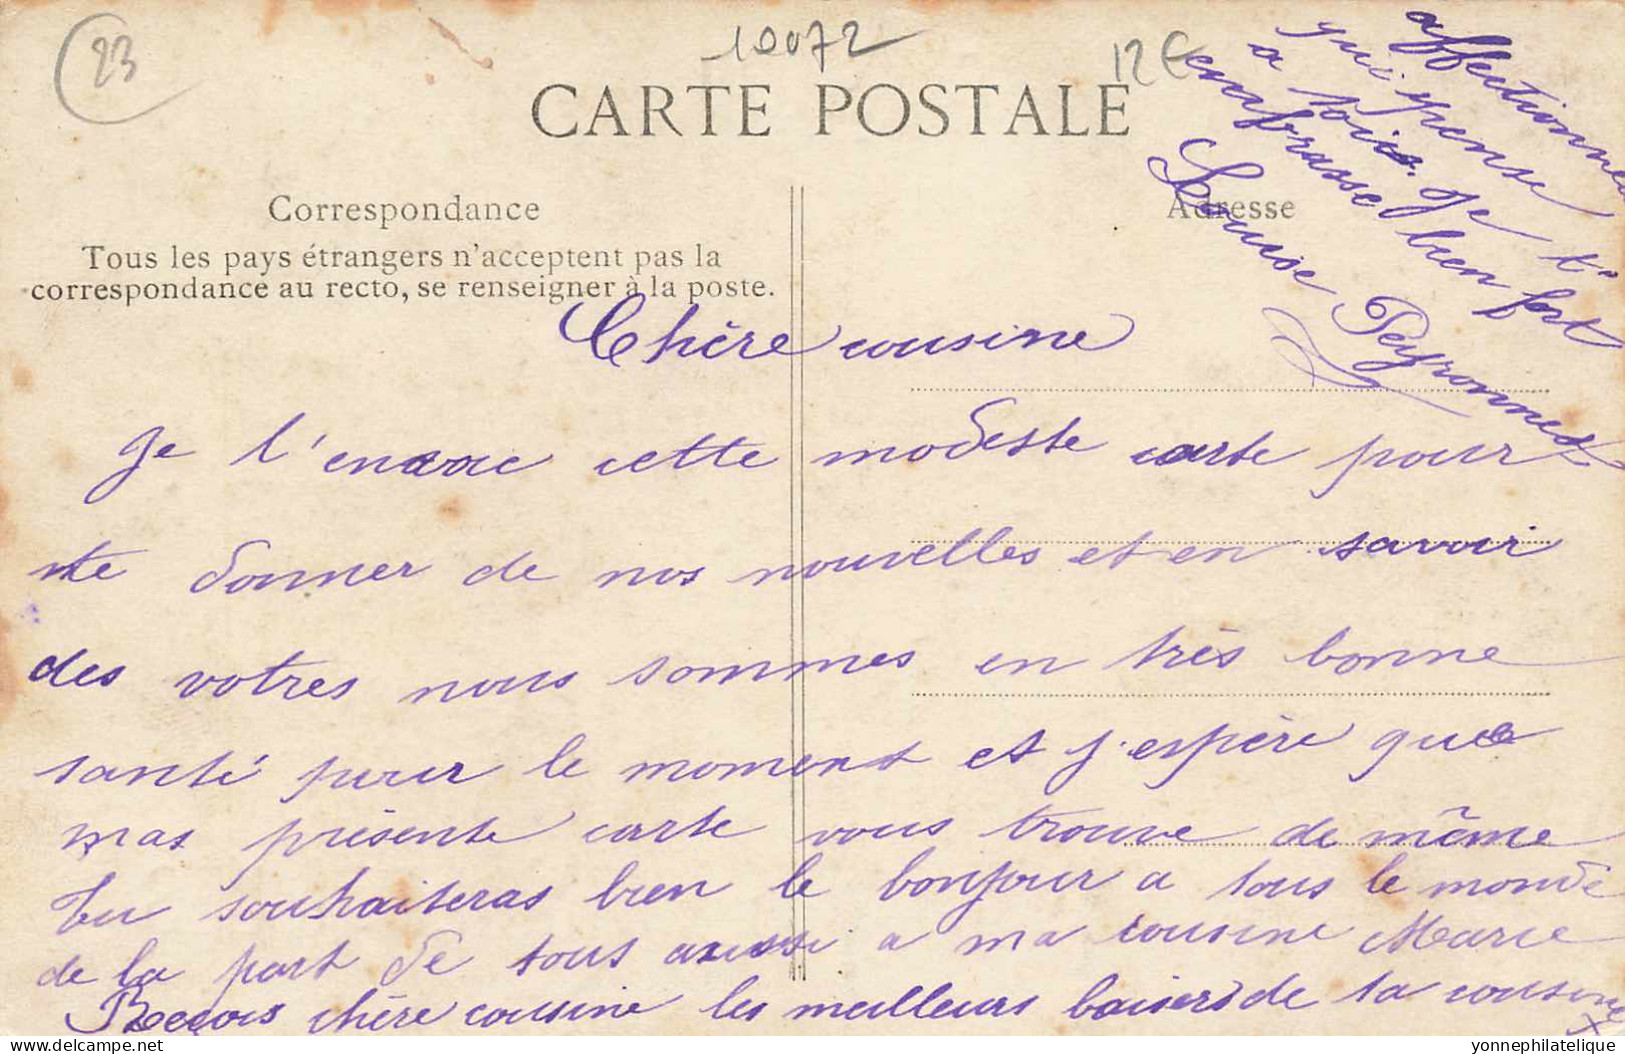 23
10072
12 €
CARTE POSTALE
Correspondance
Adresse
Tous les pays étrangers n'acceptent pas la
correspondance au recto, se renseigner à la poste.
Chère cousine
Je t'envoie cette modeste carte pour
te donner de nos nouvelles et en savoir
des votres nous sommes en très bonne
santé pour le moment et j'espère que
mas présente carte vous trouve de même
tu souhaiteras bien le bonjour a tous le monde
de la part de tous aussi a ma cousine Marie
Reçois chère cousine les meilleurs baisers de ta cousine
affectionnée
qui pense
a toi. Je t'
embrasse bien fort
Louise Peyronnet
delcampe.net
yonnephilatelique